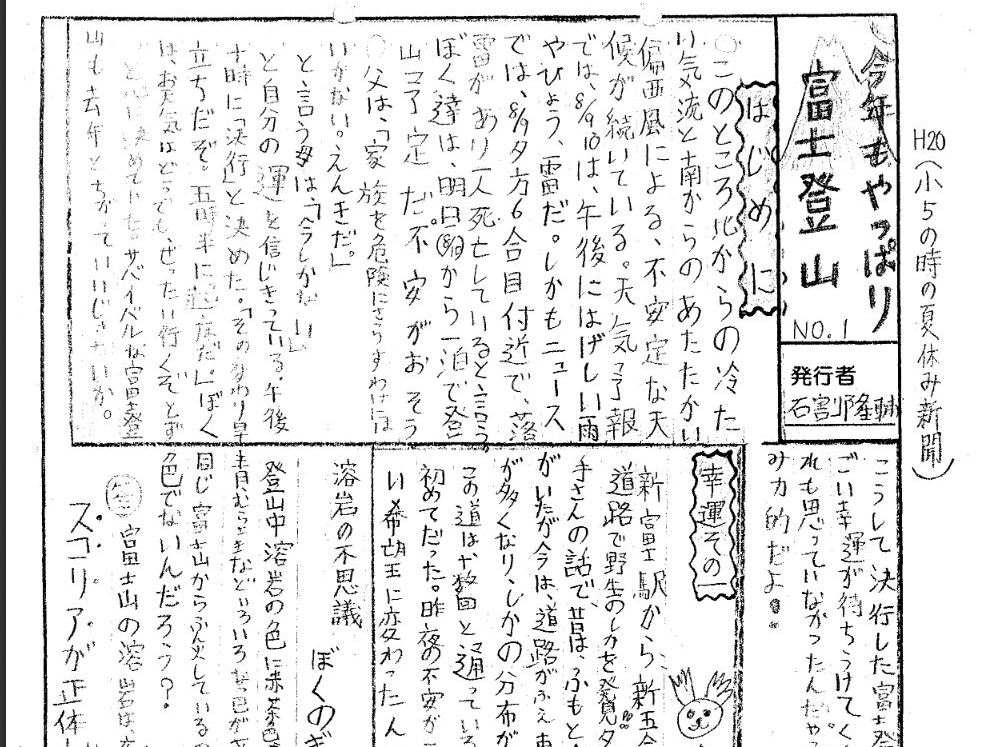 H20(小5の時の夏休み新聞)
今年もやっぱり
富士登山
NO.1
発行者
石宮隆輔
はじめに
○このところ北からの冷た
い気流と南からのあたたかい
偏西風による、不安定な天
候が続いている。天気予報
では、8/9、10は、午後にはげしい雨
やひょう、雷だ。しかもニュース
では、8/9夕方6合目付近で、落
雷があり一人死亡していると言う。
ぼく達は、明日から一泊で登
山予定だ。不安がおそう
○父は、「家族を危険にさらすわけには
いかない。えんきだ。」
と言う。母は、「今しかない」
と自分の運を信じきっている。午後
十時に「決行」と決めた。「そのかわり早
立ちだぞ。五時半に起床だ。」ぼく
は、お天気はどうでも、ぜったい行くぞとず
と心に決めていた。サバイバルな富士登
山も去年とちがっていいじゃないか。
こうして決行した富士登
ごい幸運が待ちうけてく
れも思っていなかったんだ。
み力的だよ。
幸運その一
新富士駅から、新五合
道路で野生のしかを発見!!タ
手さんの話で、昔は、ふもと
がいたが今は、道路がふえ
が多くなり、しかの分布が
この道は十数回と通ってい
初めてだった。昨夜の不安が
い希望に変わったん
溶岩の不思議
ぼくのぎ
登山中溶岩の色に赤茶色
青むらさきなどいろいろな色が
同じ富士山からふん火しているの
色でないんだろう?
答 富士山の溶岩は
スコリアが正体